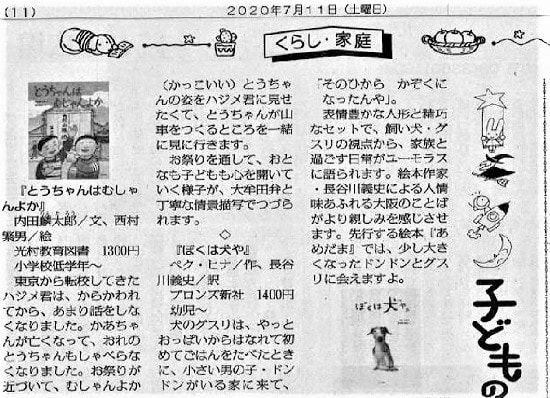 (11)
2020年7月11日（土曜日）
くらし・家庭
とうちゃんは
むしゃんよか
『とうちゃんはむしゃ
んよか』
内田麟太郎／文、西村
繁男／絵
光村教育図書　1300円
小学校低学年～
東京から転校してきた
ハジメ君は、からかわれ
てから、あまり話をしな
くなりました。かあちゃ
んが亡くなって、おれの
とうちゃんもしゃべらな
くなりました。お祭りが
近づいて、むしゃんよか
（かっこいい）とうちゃ
んの姿をハジメ君に見せ
たくて、とうちゃんが山
車をつくるところを一緒
に見に行きます。
お祭りを通して、おと
なも子どもも心を開いて
いく様子が、大牟田弁と
丁寧な情景描写でつづら
れます。
◇
『ぼくは犬や』
ペク・ヒナ／作、長谷
川義史／訳
ブロンズ新社　1400円
幼児～
犬のグスリは、やっと
おっぱいからはなれて初
めてごはんをたべたとき
に、小さい男の子・ドン
ドンがいる家に来て、
「そのひから　かぞくに
なったんや」。
表情豊かな人形と精巧
なセットで、飼い犬・グ
スリの視点から、家族と
過ごす日常がユーモラス
に語られます。絵本作家
・長谷川義史による人情
味あふれる大阪のことば
がより親しみを感じさせ
ます。先行する絵本『あ
めだま』では、少し大き
くなったドンドンとグス
リに会えますよ。
ぼくは犬や。
子どもの